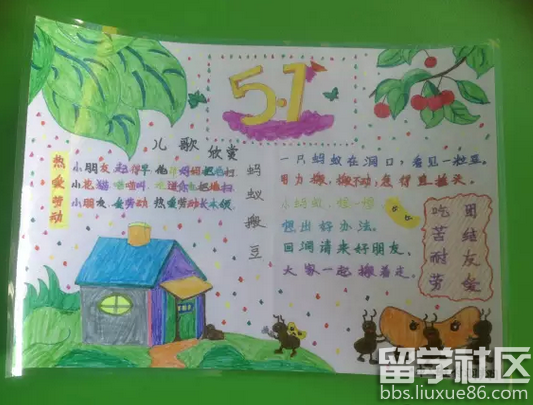 5.1
儿歌欣赏
热爱劳动
小朋友起得早
小朋友 爱劳动 热爱劳动长本领。
蚂蚁搬豆
一只蚂蚁在洞口，看见一粒豆。
用力搬，搬不动，急得直摇头。
小蚂蚁，想一想
想出好办法。
回洞请来好朋友，
大家一起搬着走。
团结友爱
吃苦耐劳
留学社区
bbs.liuxue86.com